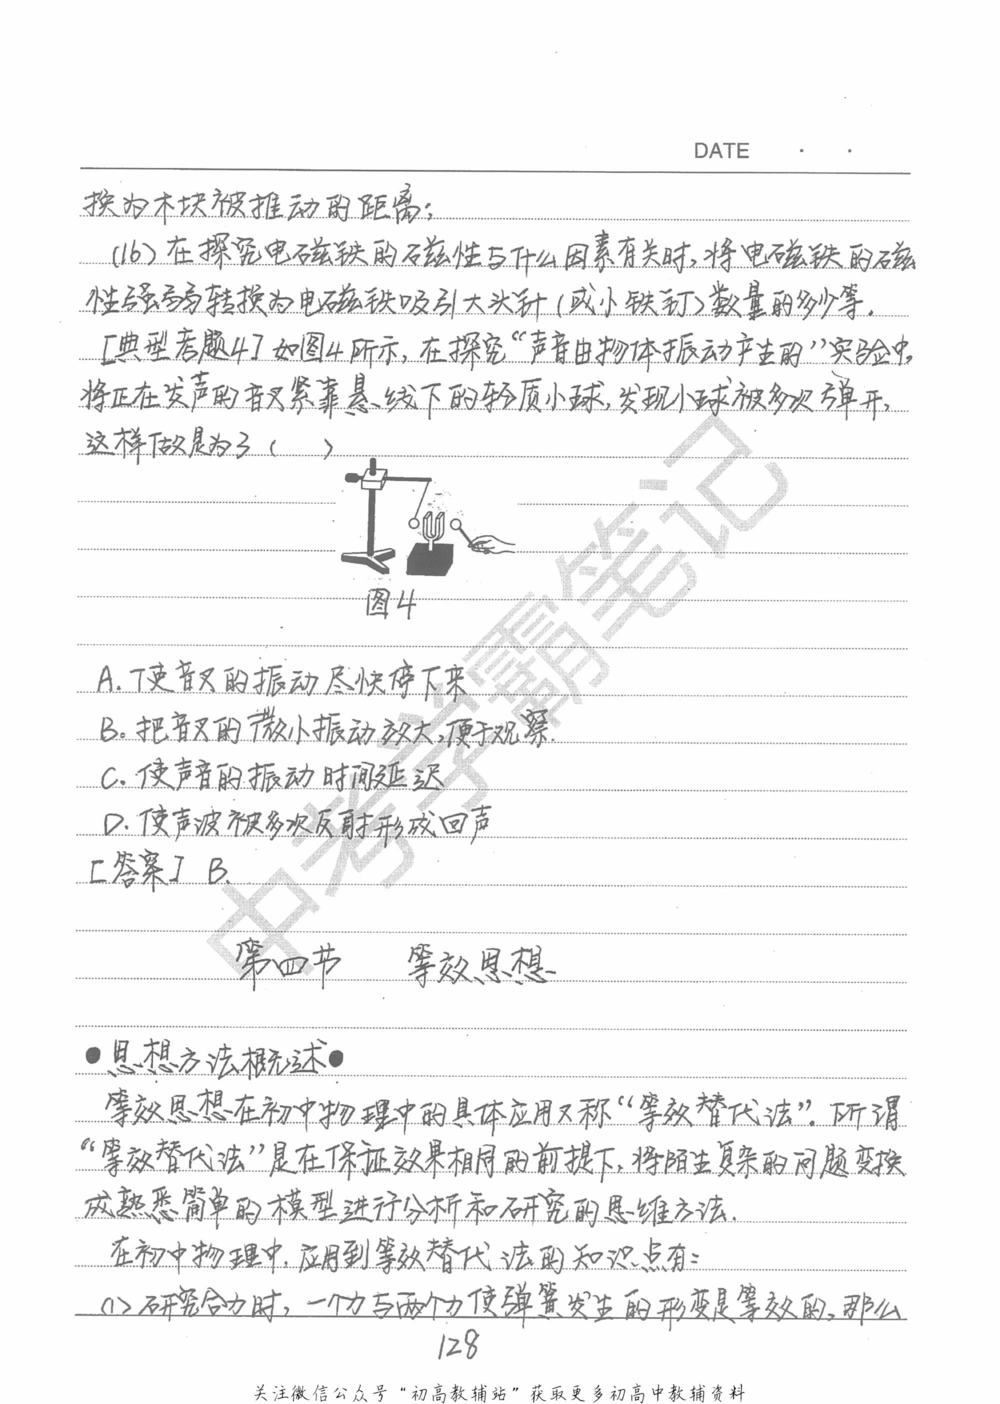 DATE · ·
换为木块被推动的距离；
(16) 在探究电磁铁的磁性与什么因素有关时，将电磁铁的磁
性强弱转换为电磁铁吸引大头针（或小铁钉）数量的多少等.
[典型考题4] 如图4所示，在探究“声音由物体振动产生的”实验中，
将正在发声的音叉紧靠悬线下的轻质小球，发现小球被多次弹开，
这样做是为了（ ）
图4
A. 使音叉的振动尽快停下来
B. 把音叉的微小振动放大，便于观察.
C. 使声音的振动时间延迟
D. 使声波被多次反射形成回声
[答案] B.
第四节 等效思想
●思想方法概述●
等效思想在初中物理中的具体应用又称“等效替代法”. 所谓
“等效替代法”是在保证效果相同的前提下，将陌生复杂的问题变换
成熟悉简单的模型进行分析和研究的思维方法.
在初中物理中，应用到等效替代法的知识点有：
(1) 研究合力时，一个力与两个力使弹簧发生的形变是等效的，那么
128
关注微信公众号“初高教辅站”获取更多初高中教辅资料
中考学霸笔记